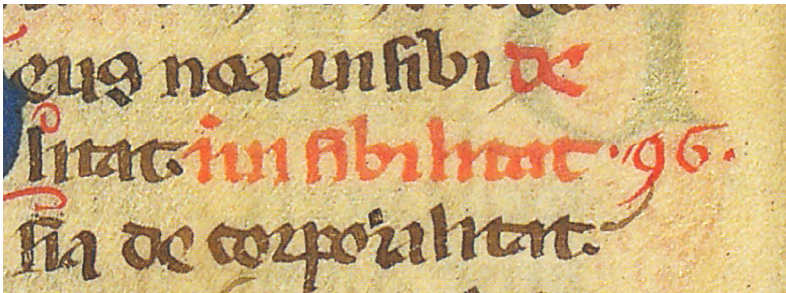 eus nos inſibi de
litat. inuiſibilitat · 96 ·
ſia de corporalitat.